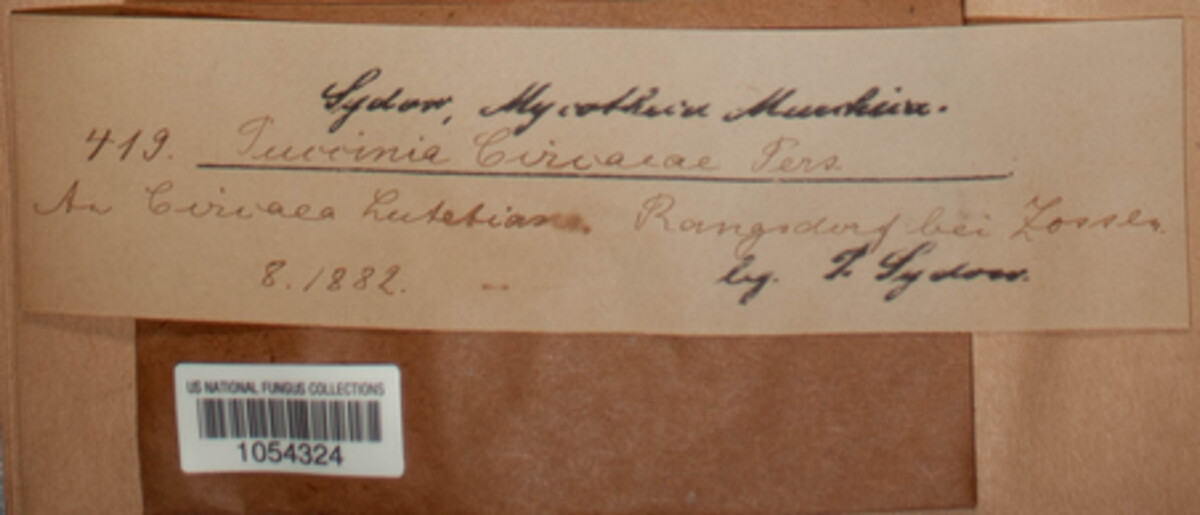 Sydow, Mycotheca Marchica.
419. Puccinia Circaeae Pers.
An Circaea Lutetiana. Rangsdorf bei Zossen.
8.1882. leg. P. Sydow.
US NATIONAL FUNGUS COLLECTIONS
1054324